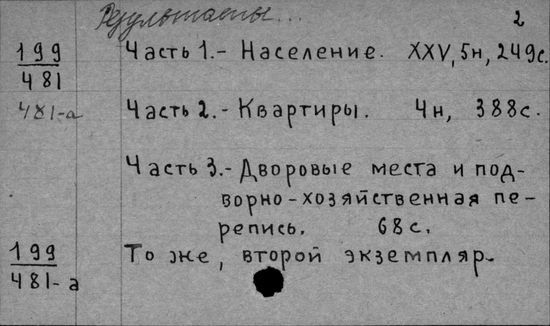 Результаты... 2
199 Часть 1.- Население. XXV, 5н, 249с.
481
481-а Часть 2.- Квартиры. 4н, 388с.
Часть 3.- Дворовые места и под-
ворно-хозяйственная пе-
репись. 68с.
199 То же, второй экземпляр
481-а